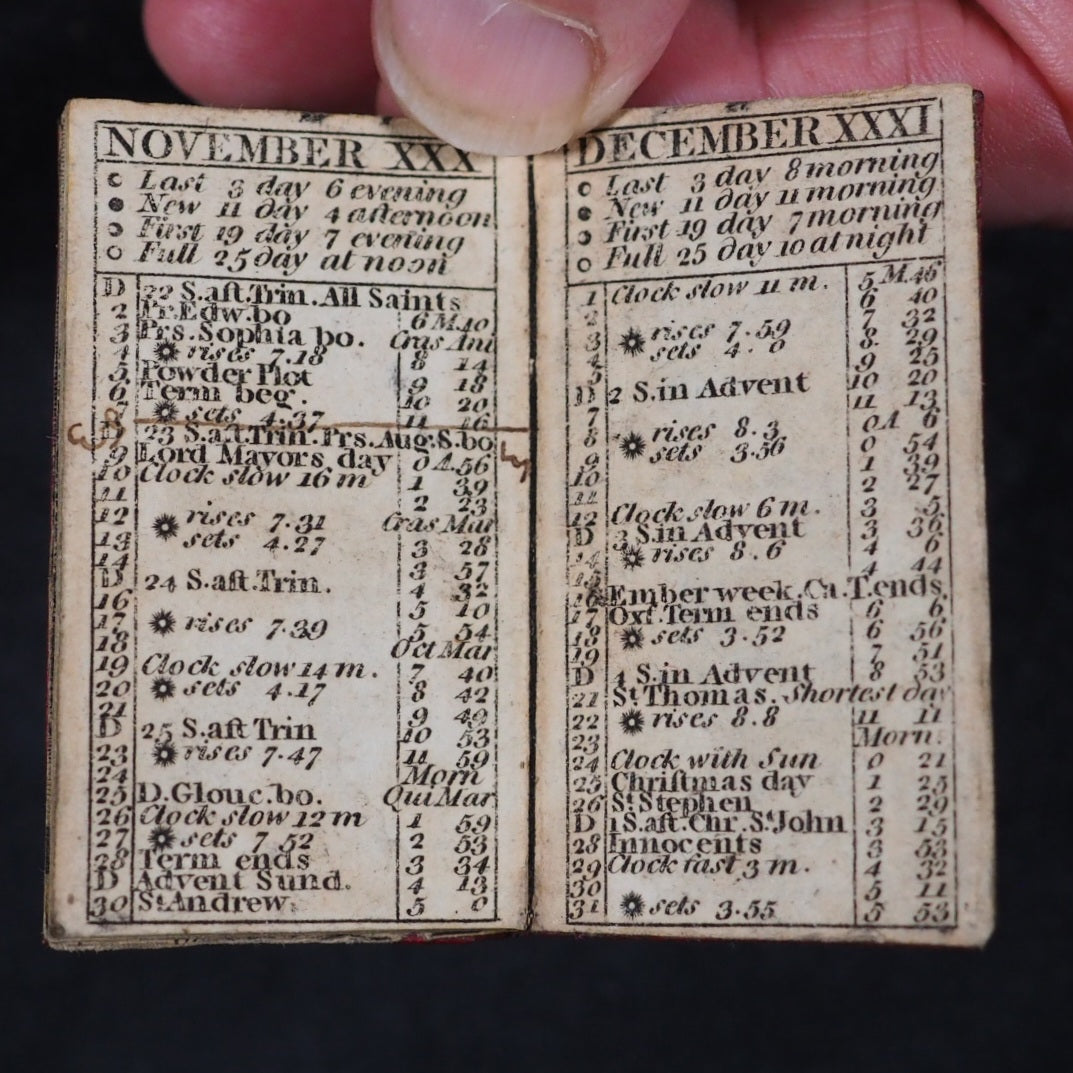 NOVEMBER XXX
Last 3 day 6 evening
New 11 day 4 afternoon
First 19 day 7 evening
Full 25 day at noon
D 22 S.aft.Trin. All Saints
2 Pr.Edw.bo 6 M.40
3 Prs.Sophia bo. Cras Ani
4 rises 7.18 8 14
5 Powder Plot 9 18
6 Term beg. 10 20
7 sets 4.37 11 16
D 23 S.aft.Trin. Prs.Aug.S.bo
9 Lord Mayors day 0 A.56
10 Clock slow 16 m 1 39
11 2 23
12 rises 7.31 Cras Mar
13 sets 4.27 3 28
14 3 57
D 24 S.aft.Trin. 4 32
16 5 10
17 rises 7.39 5 54
18 Oct Mar
19 Clock slow 14 m. 7 40
20 sets 4.17 8 42
21 9 49
D 25 S.aft Trin 10 53
23 rises 7.47 11 59
24 Morn
25 D.Glouc.bo. Qui Mar
26 Clock slow 12 m 1 59
27 sets 7 52 2 53
28 Term ends 3 34
D Advent Sund. 4 13
30 St.Andrew. 5 0
DECEMBER XXXI
Last 3 day 8 morning
New 11 day 11 morning
First 19 day 7 morning
Full 25 day 10 at night
1 Clock slow 11 m. 5 M.46
2 6 40
3 rises 7.59 7 32
4 sets 4. 0 8. 29
5 9 25
D 2 S.in Advent 10 20
7 11 13
8 rises 8.3 0A 6
9 sets 3.56 0 54
10 1 39
11 2 27
12 Clock slow 6 m. 3 5.
D 3 S.in Advent 3 36
14 rises 8.6 4 6
15 4 44
16 Ember week.Ca.T.ends.
17 Oxf.Term ends 6 6
18 sets 3.52 6 56
19 7 51
D 4 S.in Advent 8 53
21 St Thomas. Shortest day
22 rises 8.8 11 11
23 Morn.
24 Clock with Sun 0 21
25 Christmas day 1 25
26 St Stephen 2 29
D 1 S.aft.Chr.St.John 3 15
28 Innocents 3 53
29 Clock fast 3 m. 4 32
30 5 11
31 sets 3.55 5 53